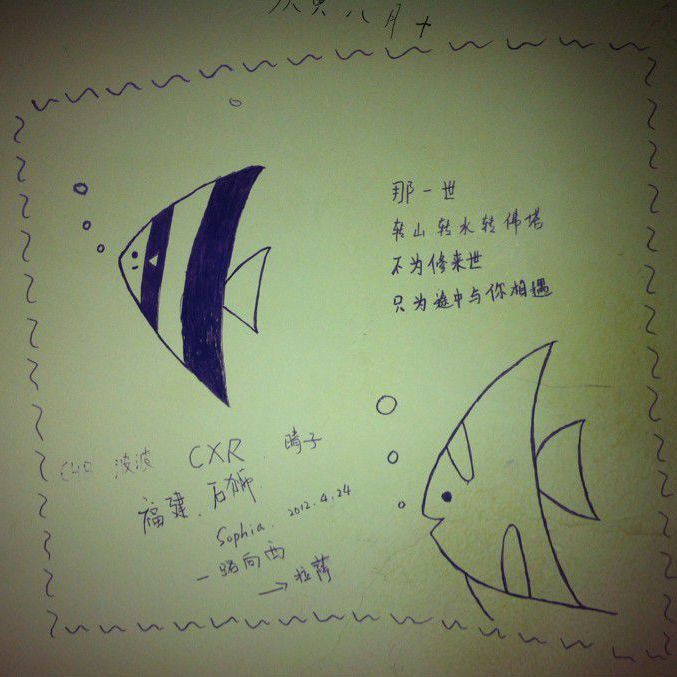 八月十
那一世
转山转水转佛塔
不为修来世
只为途中与你相遇
波波 CXR. 晴子
福建.石狮
Sophia. 2012.4.24
一路向西
→拉萨